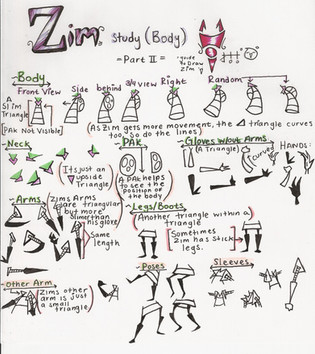 Zim study (Body)
-Part II=
-guide
to Draw
Zim
-Body
Front View
Side
behind
3/4 view
Right
Random
A
Slim
Triangle
[PAK Not Visible]
(As Zim gets more movement, the triangle curves
too. So do the lines)
-Neck
PAK
Gloves w/out Arms
(A Triangle)
Curves
HANDS:
(Its just an
upside
Triangle)
(A PAK helps
to see the
position of
the body
-Arms
(Zims Arms
are triangular
but more
slimer than
his glove)
Same
length
-Legs/Boots
(Another triangle within a
triangle)
Sometimes
Zim has stick
legs.
-Poses
Sleeves
-other Arm
(Zims other
arm is just
a small
triangle)